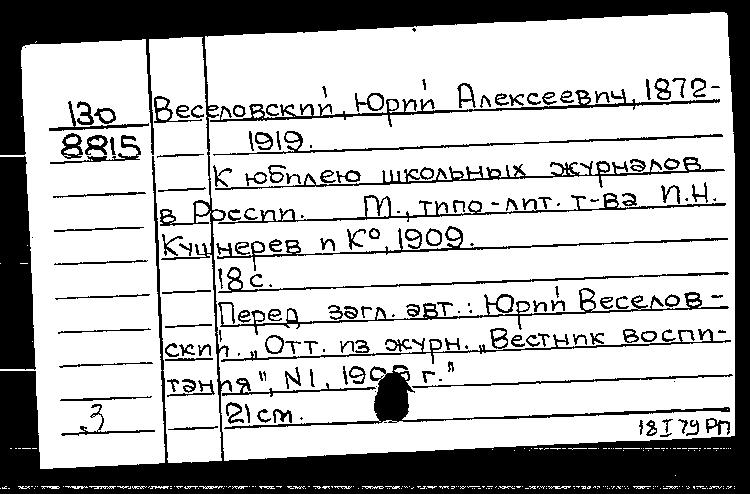 130 Веселовский, Юрий Алексеевич, 1872-
8815 1919.
К юбилею школьных журналов
в России. М., типо-лит. т-ва И.Н.
Кушнерев и К⁰, 1909.
18 с.
Перед загл. авт.: Юрий Веселов-
ский. „Отт. из журн. „Вестник воспи-
тания", N1, 1909 г."
3 21 см.
18 I 79 РП